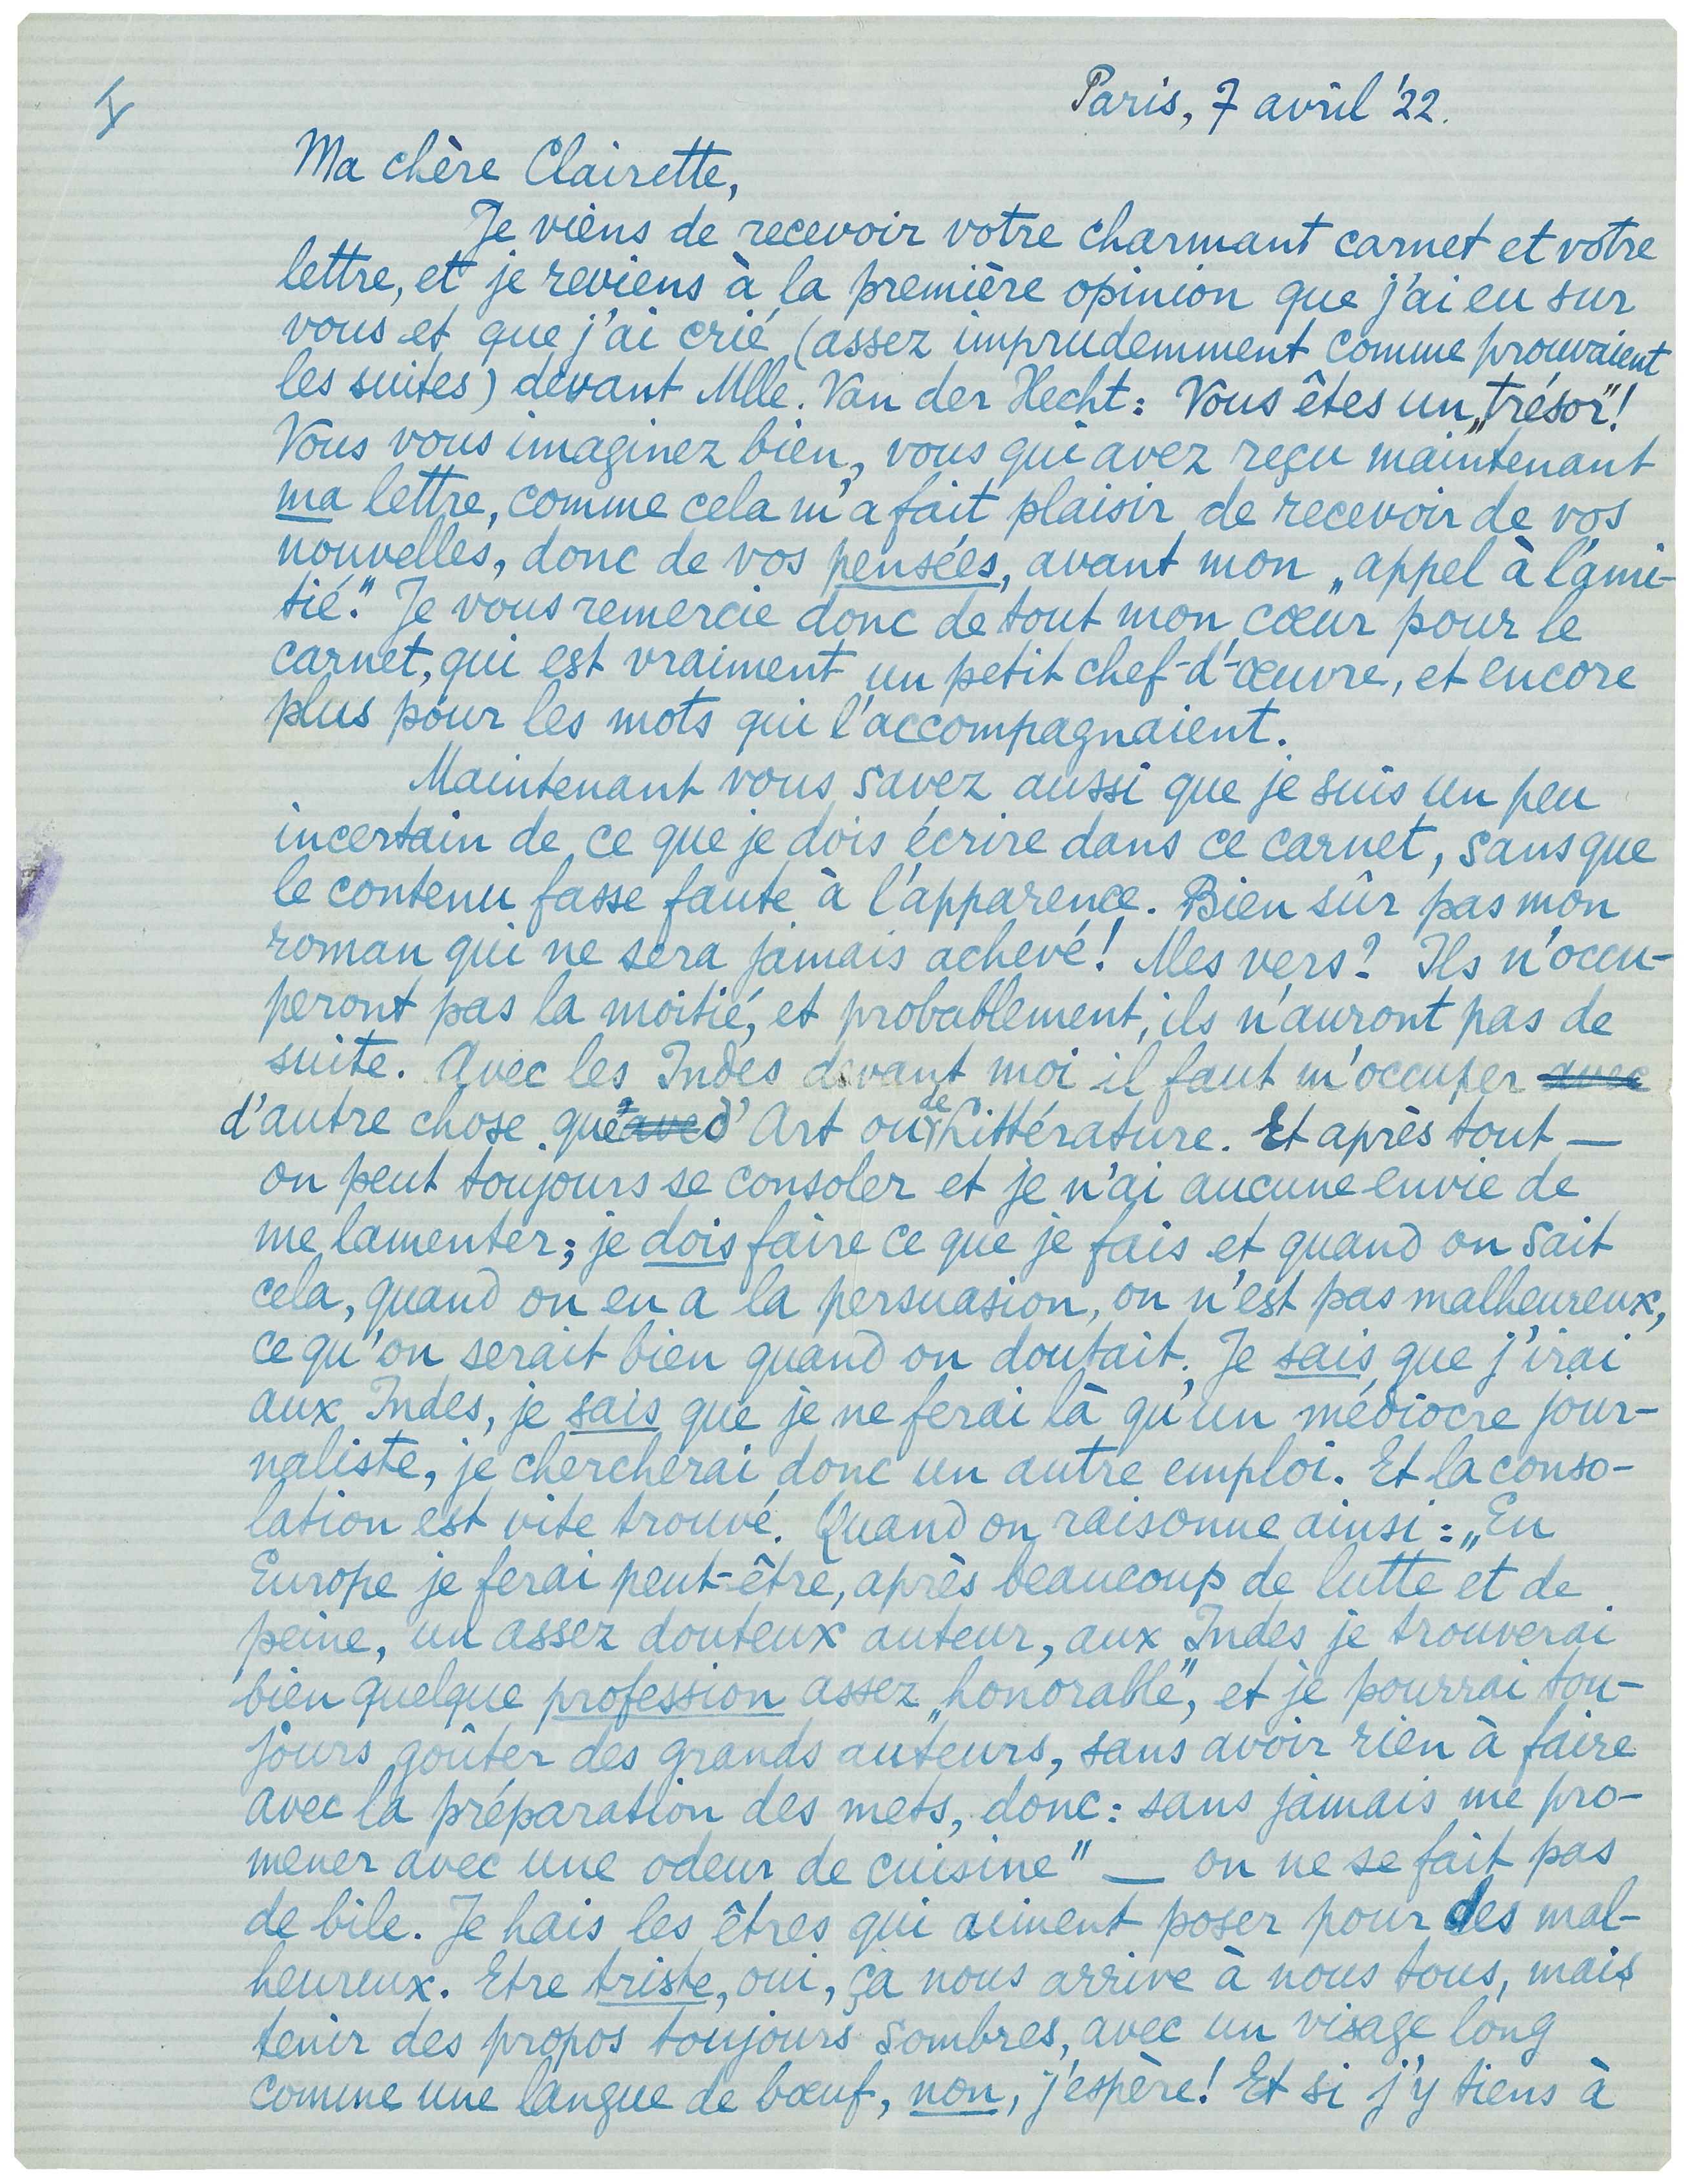 I
Paris, 7 avril '22.
Ma chère Clairette,
Je viens de recevoir votre charmant carnet et votre
lettre, et je reviens à la première opinion que j'ai eu sur
vous et que j'ai crié (assez imprudemment comme prouvaient
les suites) devant Mlle. Van der Hecht: Vous êtes un „trésor"!
Vous vous imaginez bien, vous qui avez reçu maintenant
ma lettre, comme cela m'a fait plaisir de recevoir de vos
nouvelles, donc de vos pensées, avant mon „appel à l'ami-
tié." Je vous remercie donc de tout mon cœur pour le
carnet, qui est vraiment un petit chef-d'-œuvre, et encore
plus pour les mots qui l'accompagnaient.
Maintenant vous savez aussi que je suis un peu
incertain de ce que je dois écrire dans ce carnet, sans que
le contenu fasse faute à l'apparence. Bien sûr pas mon
roman qui ne sera jamais achevé! Mes vers? Ils n'occu-
peront pas la moitié, et probablement, ils n'auront pas de
suite. Avec les Indes devant moi il faut m'occuper avec
d'autre chose que avec d'Art ou de Littérature. Et après tout —
on peut toujours se consoler et je n'ai aucune envie de
me lamenter; je dois faire ce que je fais et quand on sait
cela, quand on en a la persuasion, on n'est pas malheureux,
ce qu'on serait bien quand on doutait. Je sais que j'irai
aux Indes, je sais que je ne ferai là qu'un médiocre jour-
naliste, je chercherai donc un autre emploi. Et la conso-
lation est vite trouvé. Quand on raisonne ainsi: „En
Europe je ferai peut-être, après beaucoup de lutte et de
peine, un assez douteux auteur, aux Indes je trouverai
bien quelque profession assez „honorable", et je pourrai tou-
jours goûter des grands auteurs, sans avoir rien à faire
avec la préparation des mets, donc: sans jamais me pro-
mener avec une odeur de cuisine" — on ne se fait pas
de bile. Je hais les êtres qui aiment poser pour des mal-
heureux. Etre triste, oui, ça nous arrive à nous tous, mais
tenir des propos toujours sombres, avec un visage long
comme une langue de bœuf, non, j'espère! Et si j'y tiens à